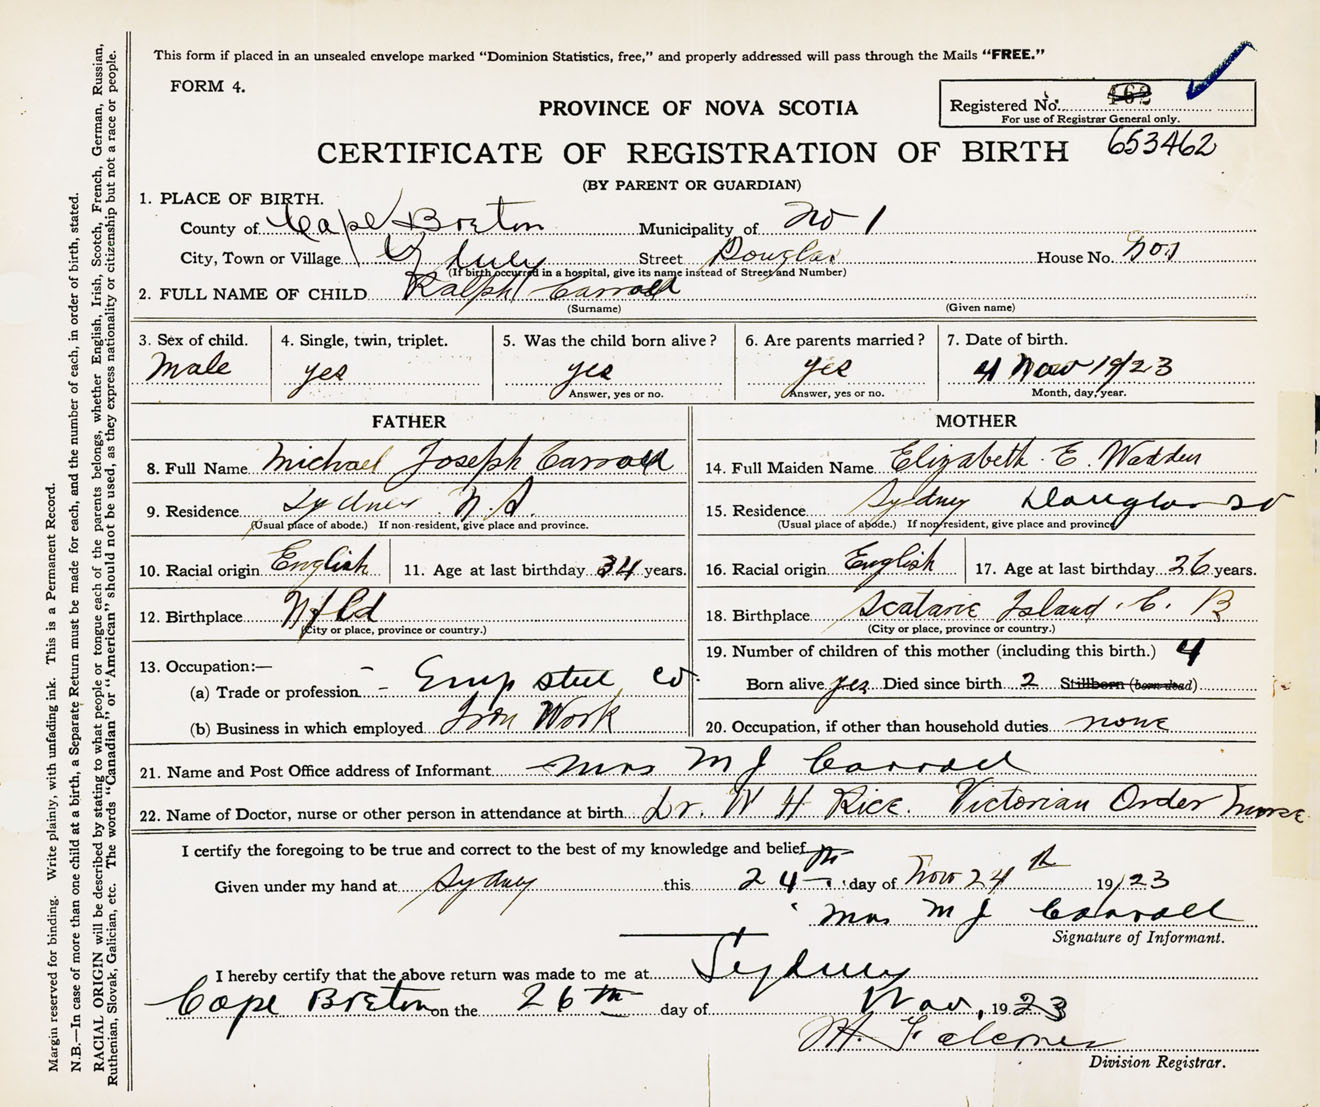 This form if placed in an unsealed envelope marked “Dominion Statistics, free,” and properly addressed will pass through the Mails “FREE.”
FORM 4.
Registered No. 462
For use of Registrar General only.
PROVINCE OF NOVA SCOTIA
653462
CERTIFICATE OF REGISTRATION OF BIRTH
(BY PARENT OR GUARDIAN)
1. PLACE OF BIRTH.
County of Cape Breton Municipality of No 1
City, Town or Village Sydney Street Douglas House No. No 1
(If birth occurred in a hospital, give its name instead of Street and Number)
2. FULL NAME OF CHILD Ralph Carroll
(Surname) (Given name)
3. Sex of child. 4. Single, twin, triplet. 5. Was the child born alive? 6. Are parents married? 7. Date of birth.
Male yes yes yes 4 Nov 1923
Answer, yes or no. Answer, yes or no. Month, day, year.
FATHER MOTHER
8. Full Name Michael Joseph Carroll 14. Full Maiden Name Elizabeth E. Wadden
9. Residence Sydney N.S. 15. Residence Sydney Douglas St
(Usual place of abode.) If non-resident, give place and province. (Usual place of abode.) If non resident, give place and province
10. Racial origin English 11. Age at last birthday 34 years. 16. Racial origin English 17. Age at last birthday 26 years.
12. Birthplace Nfld 18. Birthplace Scatarie Island. C. B
(City or place, province or country.) (City or place, province or country.)
13. Occupation:— 19. Number of children of this mother (including this birth.) 4
(a) Trade or profession - Emp steel co. Born alive yes Died since birth 2 Stillborn (born dead)
(b) Business in which employed Iron Work 20. Occupation, if other than household duties none
21. Name and Post Office address of Informant Mrs M J Carroll
22. Name of Doctor, nurse or other person in attendance at birth Dr. W H Rice. Victorian Order Nurse
I certify the foregoing to be true and correct to the best of my knowledge and belief
Given under my hand at Sydney this 24th day of Nov 24th 1923
Mrs M J Carroll
Signature of Informant.
I hereby certify that the above return was made to me at Sydney
Cape Breton on the 26th day of Nov, 1923
Falconer
Division Registrar.
Margin reserved for binding. Write plainly, with unfading ink. This is a Permanent Record.
N.B.—In case of more than one child at a birth, a Separate Return must be made for each, and the number of each, in order of birth, stated.
RACIAL ORIGIN will be described by stating to what people or tongue each of the parents belongs, whether English, Irish, Scotch, French, German, Russian,
Ruthenian, Slovak, Galician, etc. The words “Canadian” or “American” should not be used, as they express nationality or citizenship but not a race or people.